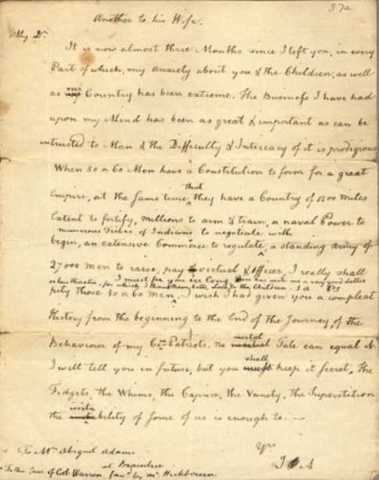 372
Another to his Wife.
My Dr.
It is now almost three Months since I left you, in every
Part of which, my anxiety about you & the Children, as well
as my Country has been extreme. The Business I have had
upon my Mind has been as great & important as can be
intrusted to Man & the Difficulty & Intricacy of it is prodigious
When 50 or 60 Men have a Constitution to form for a great
that
Empire, at the same time they have a Country of 1500 Miles
Extent to fortify, Millions to arm & train, a naval Power to
numerous Tribes of Indians to negotiate with
begin, an extensive Commerce to regulate, a standing Army of
27000 men to raise, pay victual & officer, I really shall
pity those 50 or 60 Men. I wish I had given you a compleat
History from the beginning to the End of the Journey, of the
Behaviour of my Patriots. No mortal Tale can equal it
shall
I will tell you in future, but you keep it secret, The
Fidgets, the Whims, the Caprice, the Vanity, the Superstition
the irritability of some of us is enough to. —
Yrs
J A
To Mrs Abigail Adams
at Braintree
To the Care of Col. Warren, favd. by Mr Hichbourne.